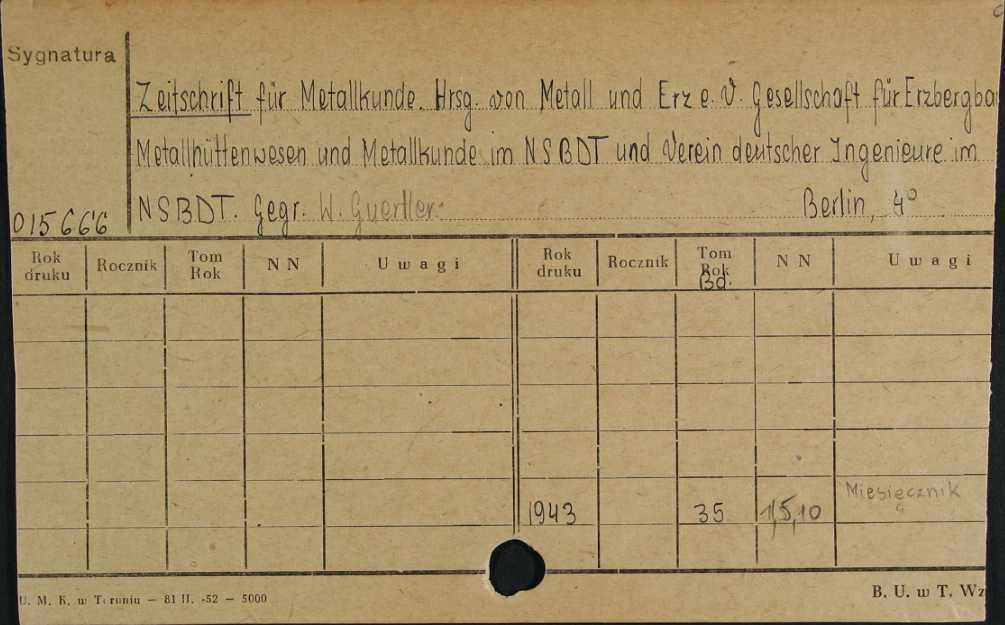 Sygnatura
Zeitschrift für Metallkunde. Hrsg. von Metall und Erz e. V. Gesellschaft für Erzbergba
Metallhüttenwesen und Metallkunde im NSBDT und Verein deutscher Ingenieure im
015666 NSBDT. Gegr. W. Guertler. Berlin, 4°
Rok druku Rocznik Tom Rok NN Uwagi Rok druku Rocznik Tom Rok Bd. NN Uwagi
1943 35 1,5,10 Miesięcznik
U. M. K. w Toruniu — 81 II. -52 — 5000 B. U. w T. Wz